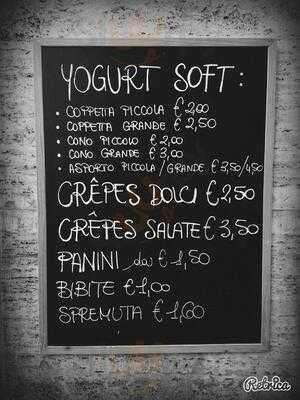 YOGURT SOFT:
• COPPETTA PICCOLA € 2,00
• COPPETTA GRANDE € 2,50
• CONO PICCOLO € 2,00
• CONO GRANDE € 3,00
• ASPORTO PICCOLA/GRANDE € 3,50/4,50
CRÊPES DOLCI € 2,50
CRÊPES SALATE € 3,50
PANINI da € 1,50
BIBITE € 1,00
SPREMUTA € 1,60
Retrica